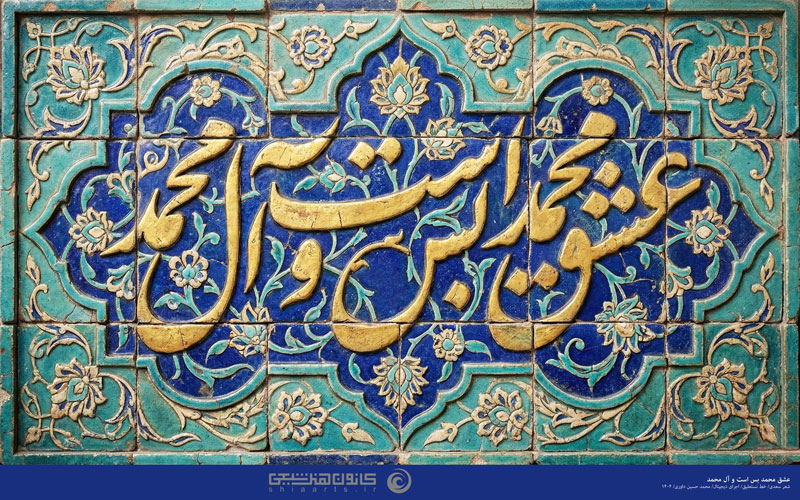 عشق محمد بس است و آل محمد
عشق محمد بس است و آل محمد
شعر سعدی/ خط نستعلیق/ اجرای دیجیتال/ محمد حسین داوری/ ۱۴۰۴
کانون هنر شیعی
shiaarts.ir